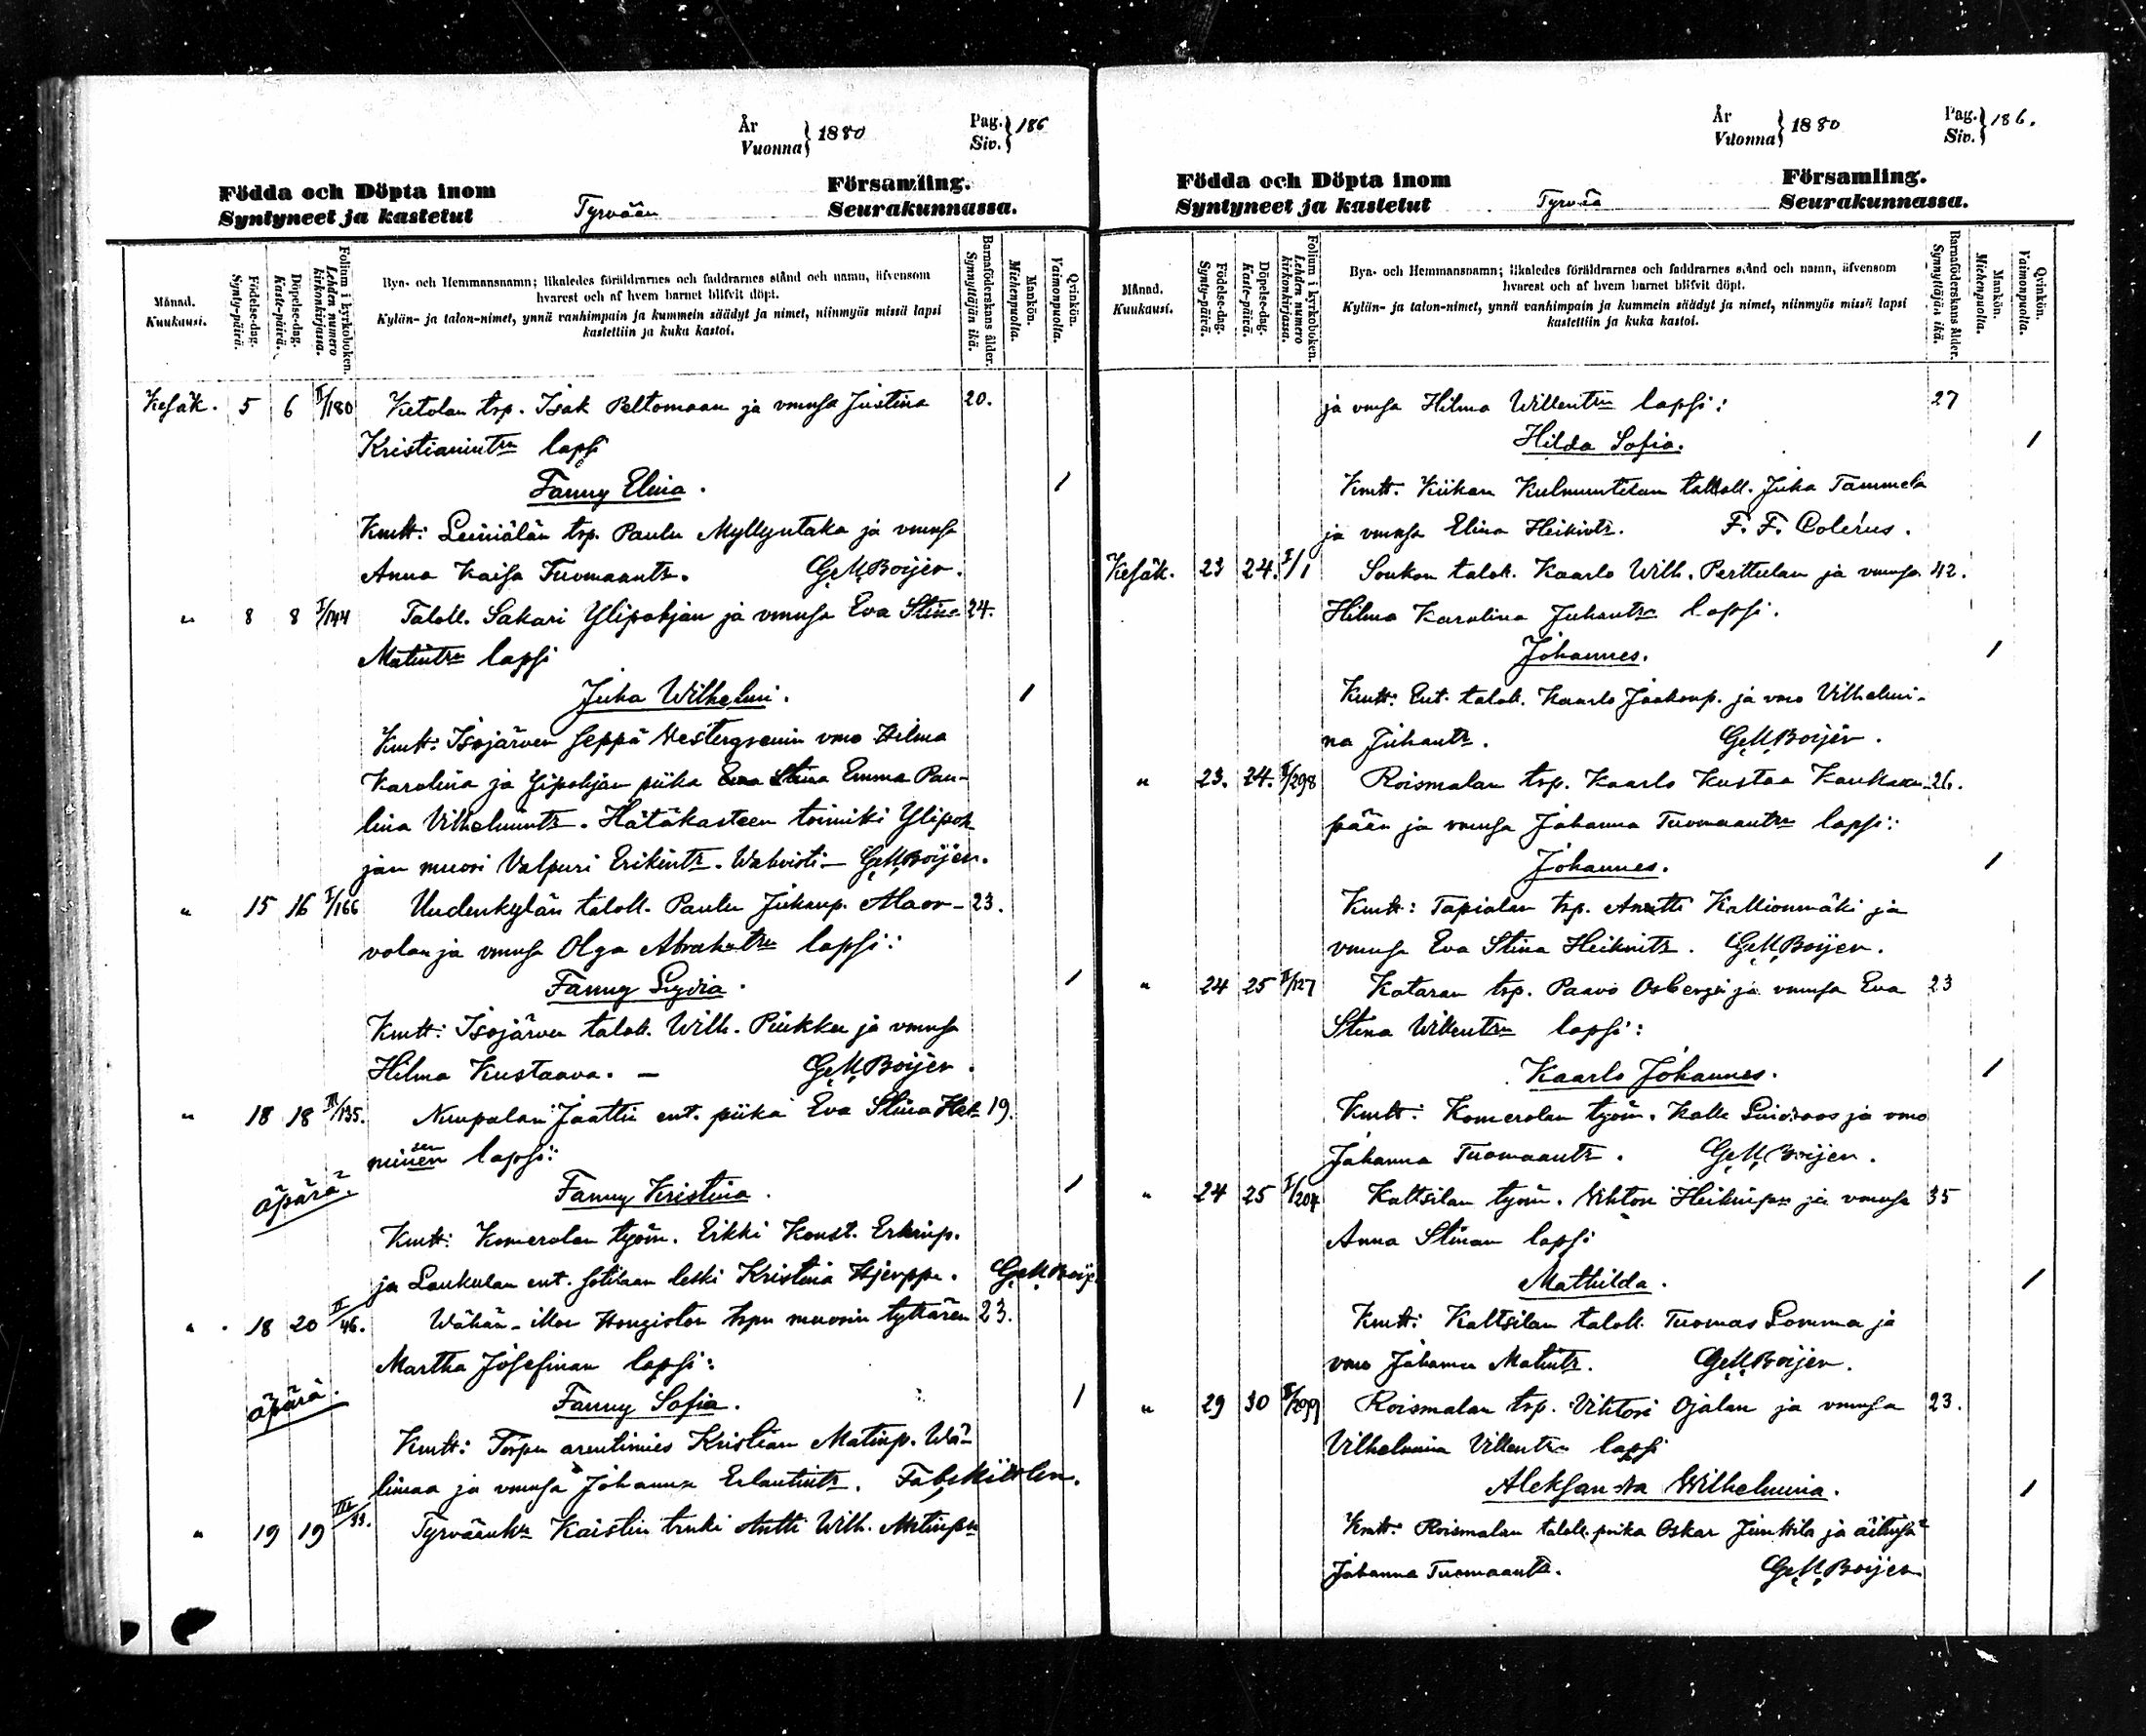 År
Vuonna } 1880
Pag.
Siv. } 186
Födda och Döpta inom
Syntyneet ja kastetut
Tyrvään
Församling.
Seurakunnassa.
Månad.
Kuukausi.
Födelse-dag.
Synty-päivä.
Döpelse-dag.
Kaste-päivä.
Folium i kyrkoboken.
Lehden numero kirkonkirjassa.
Bya- och Hemmansnamn; likaledes föräldrarnes och faddrarnes stånd och namn, äfvensom
hvarest och af hvem barnet blifvit döpt.
Kylän- ja talon-nimet, ynnä vanhimpain ja kummein säädyt ja nimet, niinmyös missä lapsi
kastettiin ja kuka kastoi.
Barnaföderskans ålder.
Synnyttäjän ikä.
Mankön.
Miehenpuolta.
Qvinkön.
Vaimonpuolta.
Kesäk. 5 6 II/180 Ketolan trp. Isak Peltomaan ja vmnsa Justina 20.
Kristianintrn lapsi
Fanny Elina. 1
Kmtt: Leiniälän trp. Paulu Myllyntaka ja vmnsa
Anna Kaisa Tuomaantr. G.M.Boijer.
" 8 8 I/144 Taloll. Sakari Ylipohjan ja vmnsa Eva Stina 24.
Matintrn lapsi
Juha Wilhelmi. 1
Kmtt: Isojärven seppä Westergrenin vmo Hilma
Karolina ja Ylipohjan piika Emma Pau-
lina Vilhelmintr. Hätäkasteen toimitti Ylipoh
jan muori Valpuri Erikintr. Wahvisti – G.M.Boijer.
" 15 16 I/166 Uudenkylän taloll. Paulu Juhanp. 23.
volan ja vmnsa Olga Abrahatrn lapsi:
Fanny Lydia. 1
Kmtt: Isojärven taloll. Wilh. Piukka ja vmnsa
Hilma Kustaava. – G.M.Boijer.
" 18 18 III/135. Nuupalan Jaattu ent. piika Eva Stina 19.
lapsi:
äpärä. Fanny Kristina. 1
Kmtt: Komerolan työm. Erkki Konst. Erkinp.
ja Laukulan ent. sotilaan leski Kristina Hjerppe. G.M.Boij.
" 18 20 II/46. Wähän-illon Hongiston trpn muorin tyttären 23.
Martha Josefinan lapsi:
äpärä. Fanny Sofia. 1
Kmtt: Torpn arentimies Kristian Matinp. Wä-
limaa ja vmnsa Johanna Erlantintr.
" 19 19 III/33. Kaistin trnki Antti Wilh. Matinpn
År
Vuonna } 1880
Pag.
Siv. } 186.
Födda och Döpta inom
Syntyneet ja kastetut
Tyrvää
Församling.
Seurakunnassa.
Månad.
Kuukausi.
Födelse-dag.
Synty-päivä.
Döpelse-dag.
Kaste-päivä.
Folium i kyrkoboken.
Lehden numero kirkonkirjassa.
Bya- och Hemmansnamn; likaledes föräldrarnes och faddrarnes stånd och namn, äfvensom
hvarest och af hvem barnet blifvit döpt.
Kylän- ja talon-nimet, ynnä vanhimpain ja kummein säädyt ja nimet, niinmyös missä lapsi
kastettiin ja kuka kastoi.
Barnaföderskans ålder.
Synnyttäjän ikä.
Mankön.
Miehenpuolta.
Qvinkön.
Vaimonpuolta.
ja vmsa Hilma Willentrn lapsi: 27
Hilda Sofia. 1
Kmtt. Kiikan Kulmuntilan taloll. Juha Tammela
ja vmnsa Elina Heikintr. F. F. Colérus.
Kesäk. 23 24. I/1 Soukon talok. Kaarlo Wilh. Perttulan ja vmnsa 42.
Hilma Karolina Juhantrn lapsi.
Johannes. 1
Kmtt: Ent. talok. Kaarlo Jaakonp. ja vmo Vilhelmi-
na Juhantr. G.M.Boijer.
" 23. 24. II/298 Roismalan trp. Kaarlo Kustaa Kaukaan- 26.
pään ja vmnsa Johanna Tuomaantrn lapsi:
Johannes. 1
Kmtt: Tapiolan trp. Anutti Kallionmäki ja
vmnsa Eva Stina Heikintr. G.M.Boijer.
" 24 25 II/127 Kataran trp. Paavo Osbergi ja vmnsa Eva 23
Stina Willentrn lapsi:
Kaarlo Johannes. 1
Kmtt: Komerolan työm. Kalle Lindroos ja vmo
Johanna Tuomaantr. G.M.Boijer.
" 24 25 I/204 Kaltsilan työm. Vihtori Heikinpn ja vmnsa 35
Anna Stinan lapsi
Mathilda. 1
Kmtt: Kaltsilan talok. Tuomas Lomma ja
vmo Johanna Matintr. G.M.Boijer.
" 29 30 II/299 Roismalan trp. Vihtori Ojalan ja vmnsa 23.
Vilhelmina Villentrn lapsi
Aleksandra Wilhelmina. 1
Kmtt: Roismalan talok. poika Oskar Junttila ja äitinsä
Johanna Tuomaantr. G.M.Boijer